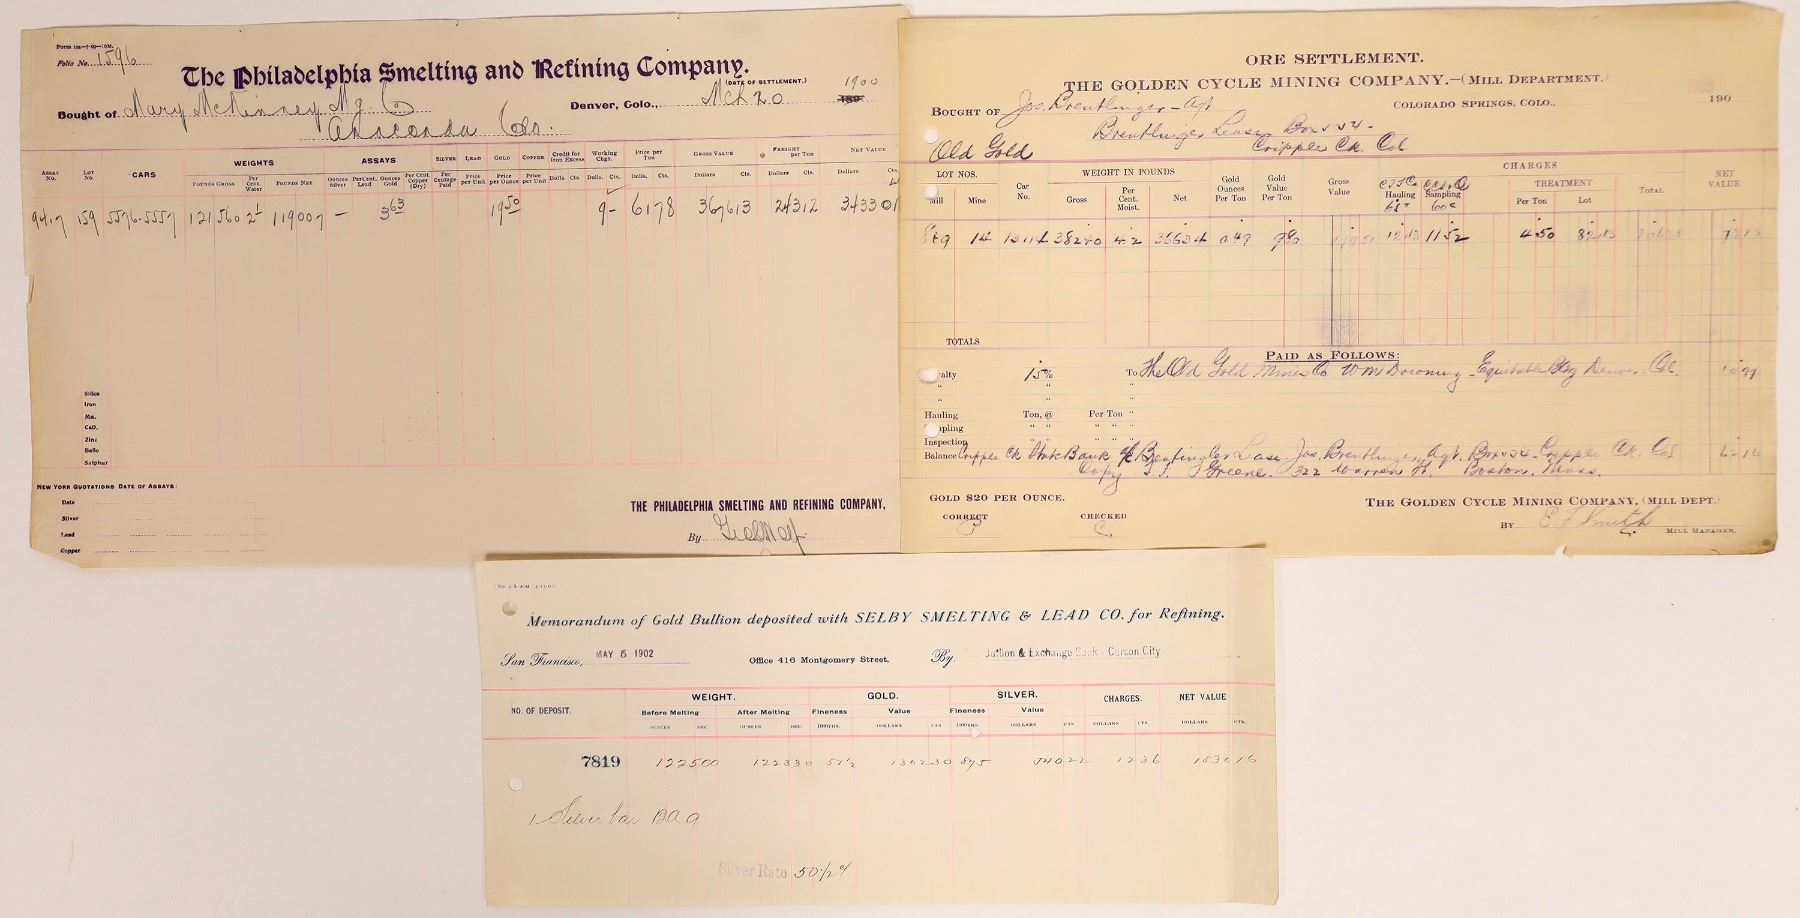 Form 124—7-99—10M.
Folio No. 1596
The Philadelphia Smelting and Refining Company.
(DATE OF SETTLEMENT.)
Bought of Mary McKinney Mg. Co Denver, Colo., Mch 20 1900 189
Anaconda Colo.
WEIGHTS ASSAYS SILVER LEAD GOLD COPPER Credit for Iron Excess Working Chgs. Price per Ton GROSS VALUE FREIGHT @ per Ton NET VALUE
ASSAY No. LOT No. CARS POUNDS GROSS Per Cent. Water POUNDS NET Ounces Silver Per Cent. Lead Ounces Gold Per Cent. Copper (Dry) Per Centage Paid Price per Unit Price per Ounce Price per Unit Dolls. Cts. Dolls. Cts. Dolls. Cts. Dollars Cts. Dollars Cts.
9417 159 5576-5557 121560 2 1/2 119007 — 3 63 19 50 9- 61 78 3676 13 243 12 3433 01
Silica
Iron
Mn.
CaO.
Zinc
BaSo
Sulphur
NEW YORK QUOTATIONS DATE OF ASSAYS:
Date
Silver
Lead
Copper
THE PHILADELPHIA SMELTING AND REFINING COMPANY,
By
ORE SETTLEMENT.
THE GOLDEN CYCLE MINING COMPANY.—(MILL DEPARTMENT.)
BOUGHT OF Jos. Brentlinger - Agt COLORADO SPRINGS, COLO., 190
Brentlinger Lease Box 554 -
Old Gold Cripple Ck. Col
LOT NOS. Car No. WEIGHT IN POUNDS Gold Ounces Per Ton Gold Value Per Ton Gross Value CHARGES NET VALUE
Mill Mine Gross Per Cent. Moist. Net Hauling Sampling 60c TREATMENT Per Ton Lot TOTAL
14 13114 38240 4.2 36634 0.49 980 11 52 4 50 82 43
TOTALS
PAID AS FOLLOWS:
alty 15% To The Old Gold Mines Co Wm Downing - Equitable Bldg Denver. Col.
" " "
" " "
Hauling Ton, @ Per Ton "
mpling " " " " "
Inspection " " " " "
Balance Cripple Ck State Bank Lease Jos. Brentlinger Agt. Box 554 - Cripple Ck. Col
Copy Greene. 322 Warren St. Boston, Mass.
GOLD $20 PER OUNCE. THE GOLDEN CYCLE MINING COMPANY, (MILL DEPT.)
CORRECT CHECKED BY E F Smith
MILL MANAGER.
Memorandum of Gold Bullion deposited with SELBY SMELTING & LEAD CO. for Refining.
San Francisco, MAY 5 1902 Office 416 Montgomery Street. By Bullion & Exchange Bank - Carson City
WEIGHT. GOLD. SILVER. CHARGES. NET VALUE
NO. OF DEPOSIT. Before Melting After Melting Fineness Value Fineness Value
OUNCES DEC. OUNCES DEC. 1000THS. DOLLARS CTS. 1000THS. DOLLARS CTS. DOLLARS CTS. DOLLARS CTS.
7819 1225 00 1223 30 51 1/2 1302 30 895 540 22 12 36 1830 16
1 Silver bar
Silver Rate 50 1/2 ¢